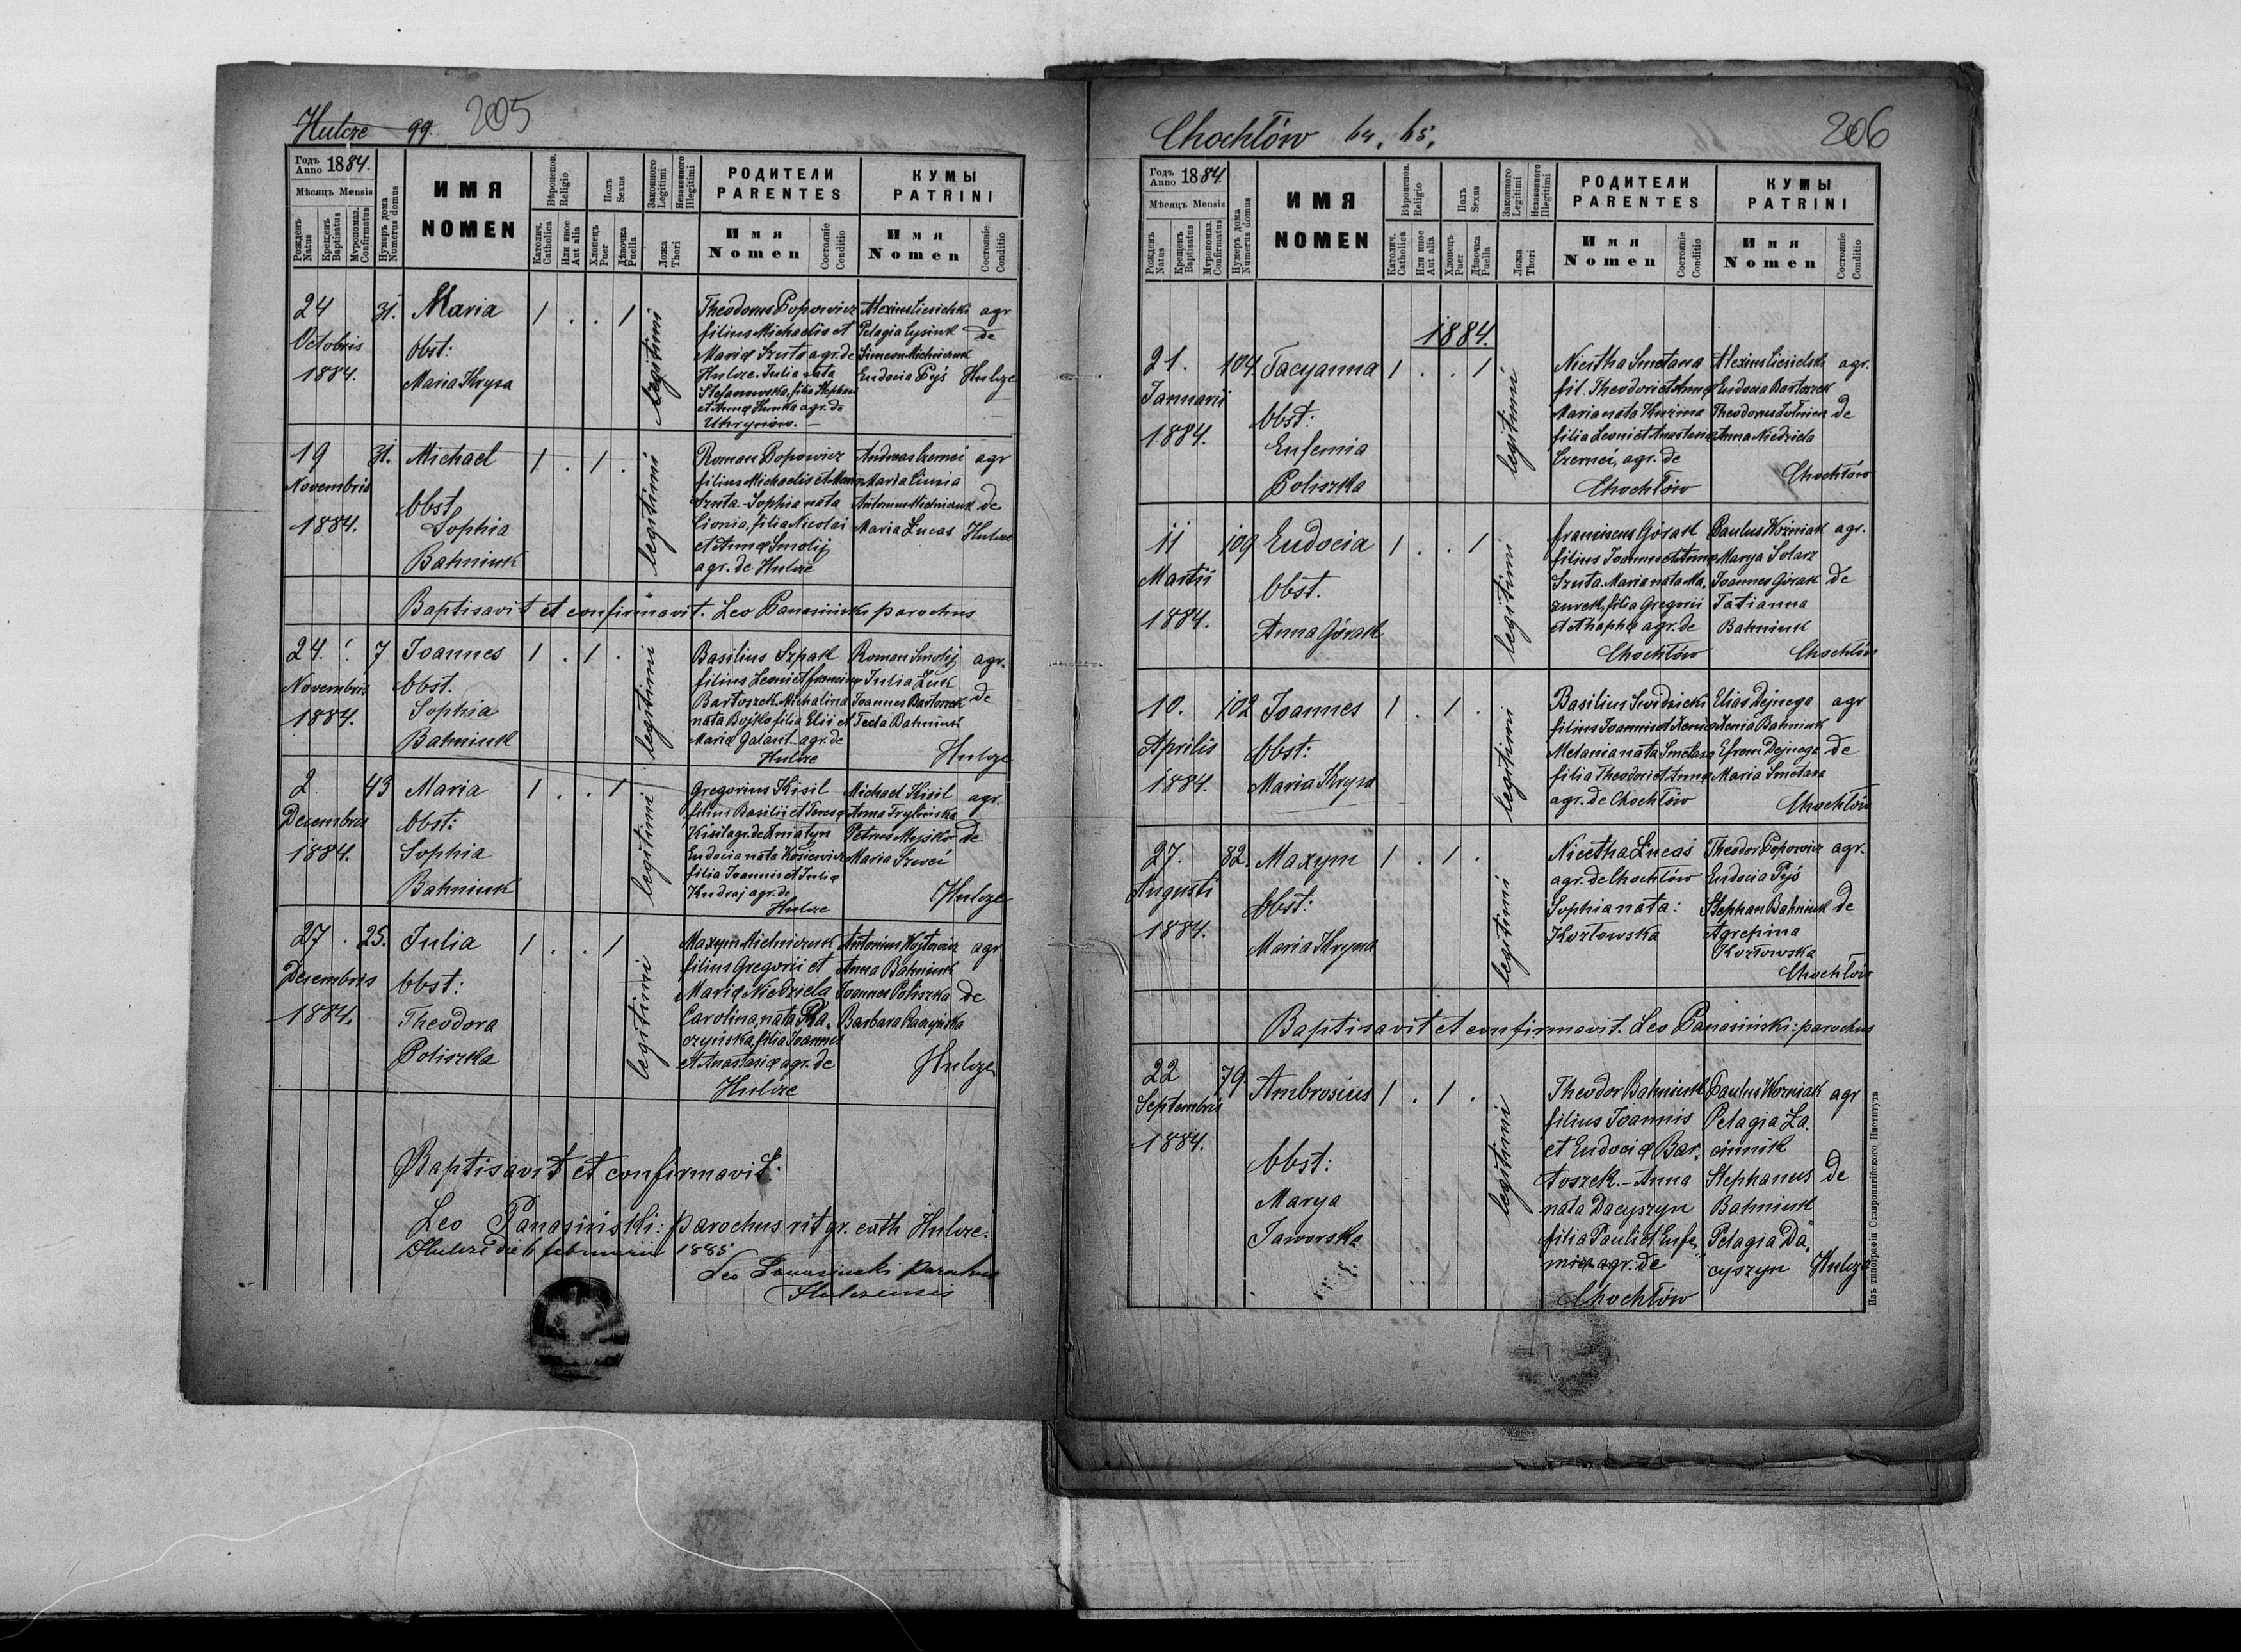 Hulcze 99. 205
Годъ Anno 1884.
Мѣсяцъ Mensis
Рожденъ Natus
Крещенъ Baptisatus
Мѵропомаз. Confirmatus
Нумеръ дома Numerus domus
ИМЯ
NOMEN
Вѣроисповѣд. Religio
Католич. Catholica
Или иное Aut alia
Полъ Sexus
Хлопецъ Puer
Дѣвочка Puella
Законного Legitimi
Незаконного Illegitimi
Ложа Thori
РОДИТЕЛИ
PARENTES
Имя
Nomen
Состояніе Conditio
КУМЫ
PATRINI
Имя
Nomen
Состояніе Conditio
24 Octobris 1884.
31.
Maria
obst:
Maria Hryza
1 . . 1
legitimi
Theodorus Popowicz
filius Michaelis et
Mariæ Szuta agr. de
Hulcze. Julia nata
Stefanowska, filia Stephani
et Annæ Hunka agr. de
Uhrynów. —
Alexius Ciesielski agr
Pelagia Łysiuk de
Simeon Michniczuk
Eudocia Pyś Hulcze
19 Novembris 1884.
31.
Michael
obst
Sophia
Bahniuk
1 . 1 .
legitimi
Roman Popowicz
filius Michaelis et Mariæ
Szuta. Sophia nata
Cionia, filia Nicolai
et Annæ Smolij
agr. de Hulcze
Andreas Czernei agr
Maria Cionia
Antonius Michniczuk de
Maria Lucas Hulcze
Baptisavit et confirmavit. Leo Panasiński parochus
24. Novembris 1884.
7
Joannes
obst.
Sophia
Bahniuk
1 . 1 .
legitimi
Basilius Szpak
filius Leonis et Franciscæ
Bartoszek. Michalina
nata Bojko filia Elii et
Mariæ Galant. agr. de
Hulcze
Roman Smolij agr.
Julia Żuk
Joannes Bartoszek de
Tecla Bahniuk
Hulcze
2. Decembris 1884.
43
Maria
obst:
Sophia
Bahniuk
1 . . 1
legitimi
Gregorius Kisil
filius Basilii et Teresæ
Kisil agr. de Żniatyn
Eudocia nata Kosiewicz
filia Joannis et Juliæ
Kudraj agr. de
Hulcze
Michael Kisil agr.
Anna Trylińska
Petrus Mejsko de
Maria Szweć
Hulcze
27. Decembris 1884.
25.
Julia
obst:
Theodora
Poliszka
1 . . 1
legitimi
Maxym Michniczuk
filius Gregorii et
Mariæ Niedziela
Carolina, nata Ra-
czyńska, filia Joannis
et Anastasiæ agr. de
Hulcze
Antonius Wojtowicz agr
Anna Bahniuk
Joannes Poliszka de
Barbara Raczyńska
Hulcze
Baptisavit et confirmavit.
Leo Panasiński: parochus rit gr. cath Hulcze.
Hulcze die 6 februarii 1885
Leo Panasinski parochus
Hulczensis
Chochłów 64, 65, 206
Годъ Anno 1884.
Мѣсяцъ Mensis
Рожденъ Natus
Крещенъ Baptisatus
Мѵропомаз. Confirmatus
Нумеръ дома Numerus domus
ИМЯ
NOMEN
Вѣроисповѣд. Religio
Католич. Catholica
Или иное Aut alia
Полъ Sexus
Хлопецъ Puer
Дѣвочка Puella
Законного Legitimi
Незаконного Illegitimi
Ложа Thori
РОДИТЕЛИ
PARENTES
Имя
Nomen
Состояніе Conditio
КУМЫ
PATRINI
Имя
Nomen
Состояніе Conditio
1884.
21. Januarii 1884.
104
Tacyanna
obst:
Eufemia
Poliszka
1 . . 1
legitimi
Nicetha Smetana
fil. Theodori et Annæ
Maria nata Kuzma
filia Leonis et Anastasiæ
Czernei, agr. de
Chochłów
Alexius Ciesielski agr.
Eudocia Bartoszek
Theodorus Żołnierz de
Anna Niedziela
Chochłów
11 Martii 1884.
109
Eudocia
obst.
Anna Górak
1 . . 1
legitimi
Franciscus Górak
filius Joannis et Annæ
Szuta. Maria nata Ma-
zurek, filia Gregorii
et Ahaphæ agr. de
Chochłów
Paulus Woźniak agr.
Marya Solarz
Joannes Górak de
Tatianna
Bahniuk
Chochłów
10. Aprilis 1884.
102
Joannes
obst:
Maria Hryza
1 . 1 .
legitimi
Basilius Swidzicki
filius Joannis et Xeniæ
Melania nata Smetana
filia Theodori et Annæ
agr. de Chochłów
Elias Dejnega agr
Xenia Bahniuk
Efrem Dejnega de
Maria Smetana
Chochłów
27. Augusti 1884.
82.
Maxym
obst:
Maria Hryza
1 . 1 .
legitimi
Nicetha Lucas
agr. de Chochłów
Sophia nata:
Kozłowska
Theodor Popowicz agr.
Eudocia Pyś
Stephan Bahniuk de
Agrepina
Kozłowska
Chochłów
Baptisavit et confirmavit. Leo Panasiński: parochus
22 Septembris 1884.
79.
Ambrosius
obst:
Marya
Jaworska
1 . 1 .
legitimi
Theodor Bahniuk
filius Joannis
et Eudociæ Bar-
toszek. – Anna
nata Dacyszyn
filia Pauli et Eufe-
miæ agr. de
Chochłów
Paulus Wozniak agr
Pelagia Za-
Stephanus de
Bahniuk
Pelagia Da-
cyszyn Hulcze
Изъ типографіи Ставропигійского Института